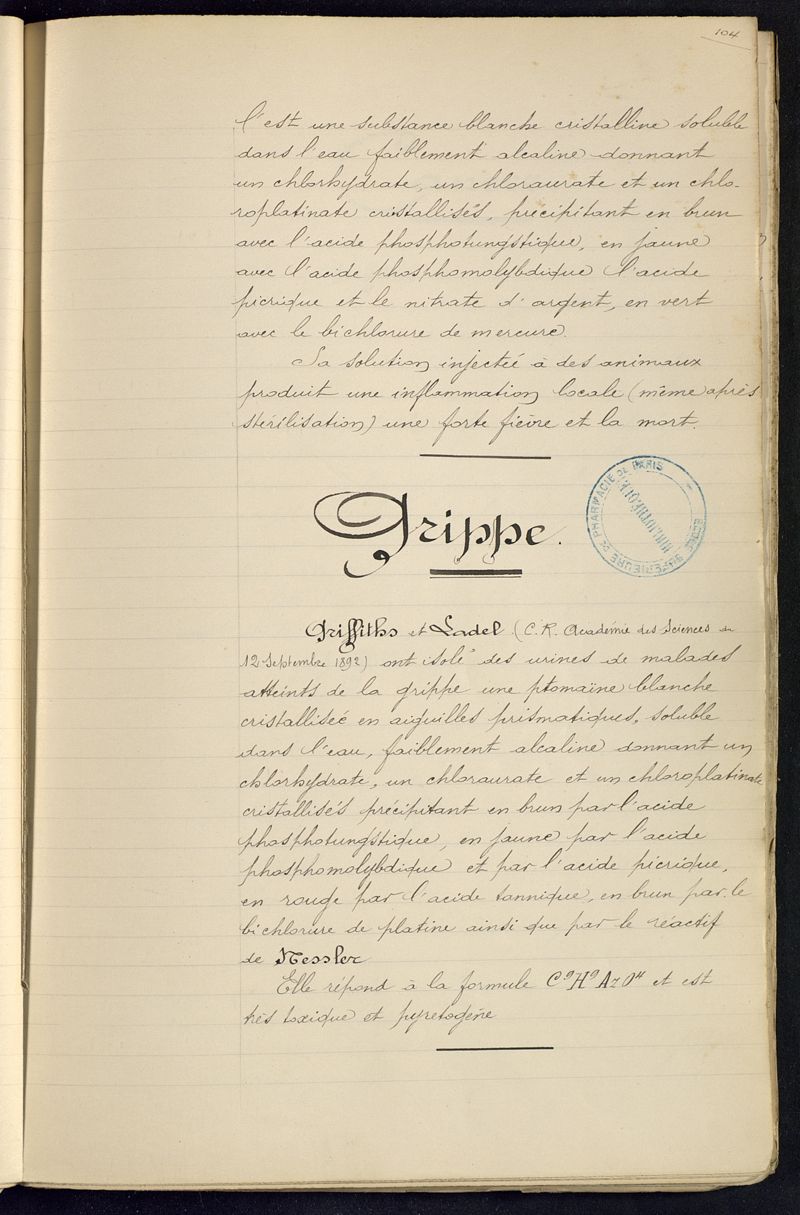 104
C'est une substance blanche cristalline soluble
dans l'eau faiblement alcaline donnant
un chlorhydrate, un chloraurate et un chlo-
roplatinate cristallisés, précipitant en brun
avec l'acide phosphotungstique, en jaune
avec l'acide phosphomolybdique l'acide
picrique et le nitrate d'argent, en vert
avec le bichlorure de mercure.
Sa solution injectée à des animaux
produit une inflammation locale (même après
stérilisation) une forte fièvre et la mort.
Grippe.
ECOLE SUPÉRIEURE DE PHARMACIE DE PARIS
BIBLIOTHÈQUE
Griffiths et Ladel (C.R. Académie des Sciences du
12 Septembre 1892) ont isolé des urines de malades
atteints de la grippe une ptomaïne blanche
cristallisée en aiguilles prismatiques, soluble
dans l'eau, faiblement alcaline donnant un
chlorhydrate, un chloraurate et un chloroplatinate
cristallisés précipitant en brun par l'acide
phosphotungstique, en jaune par l'acide
phosphomolybdique et par l'acide picrique,
en rouge par l'acide tannique, en brun par le
bichlorure de platine ainsi que par le réactif
de Nessler
Elle répond à la formule C⁹H⁹AzO⁴ et est
très toxique et pyretogène